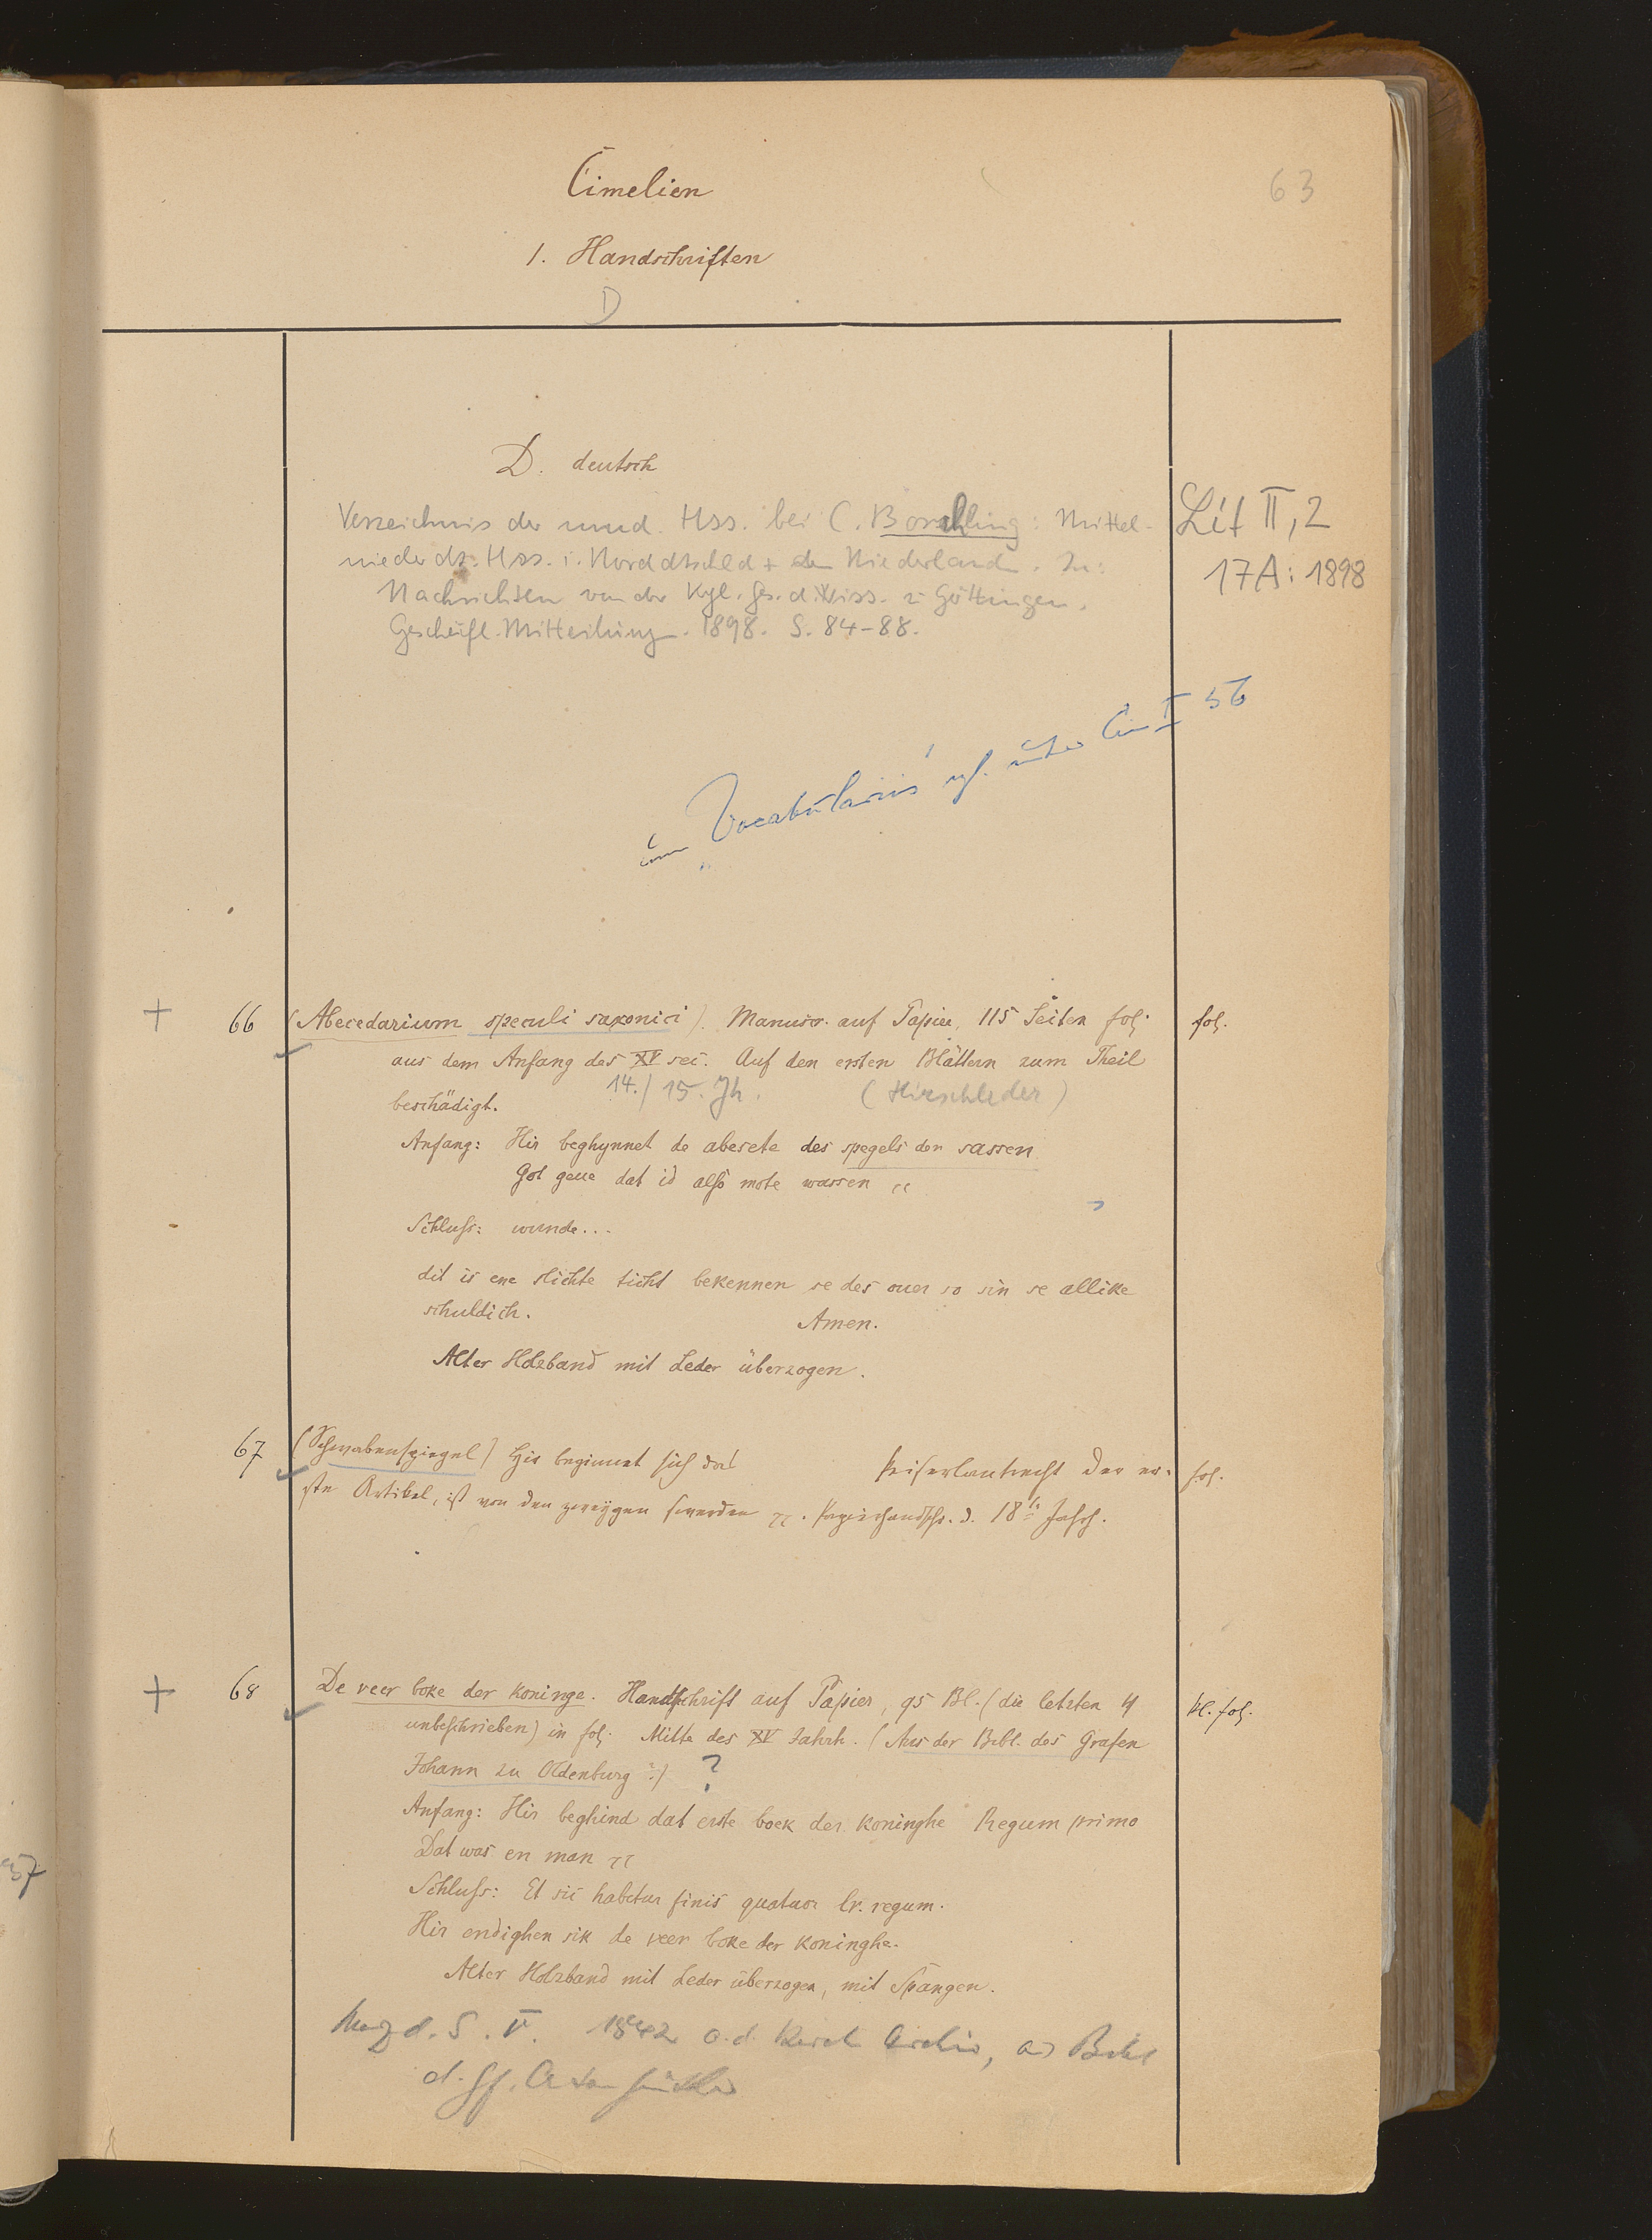 Cimelien
63
1. Handschriften
D
D. deutsch
Verzeichnis der mnd. Hss. bei C. Borchling: Mittel-
niederdt. Hss. i. Norddtschld + den Niederlanden. In:
Nachrichten von der Kgl. Ges. d. Wiss. z. Göttingen.
Geschäftl. Mitteilungen. 1898. S. 84-88.
Lit II, 2
17A: 1898
"Vocabularius" vgl. unter Cim I 56
+ 66 (Abecedarium speculi saxonici). Manuscr. auf Papier, 115 Seiten fol. fol.
aus dem Anfang des XV sec. Auf den ersten Blättern zum Theil
14./15. Jh. (Hirschleder)
beschädigt.
Anfang: Hir beghynnet de abesete des spegels der sassen
Got geue dat id also mote wassen
Schluss: wunde...
dit is ene slichte ticht bekennen se des ouer so sin se allike
schuldich. Amen.
Alter Holzband mit Leder überzogen.
67 (Schwabenspiegel) Hie beginnet sich das Keiserlantrecht der er- fol.
ste Artikel, ist von den zweygen swerden. Papierhandschr. d. 18ten Jahrh.
+ 68 De veer boke der koninge. Handschrift auf Papier, 95 Bl. (die letzten 4 kl. fol.
unbeschrieben) in fol. Mitte des XV Jahrh. (Aus der Bibl. des Grafen
Johann zu Oldenburg?) ?
Anfang: Hir beghind dat erste boek der koninghe Regum primo
Dat was en man
Schluss: Et sic habetur finis quatuor lr. regum.
Hir endighen sik de veer boke der koninghe.
Alter Holzband mit Leder überzogen, mit Spangen.
1842 a. d. Archiv,
37